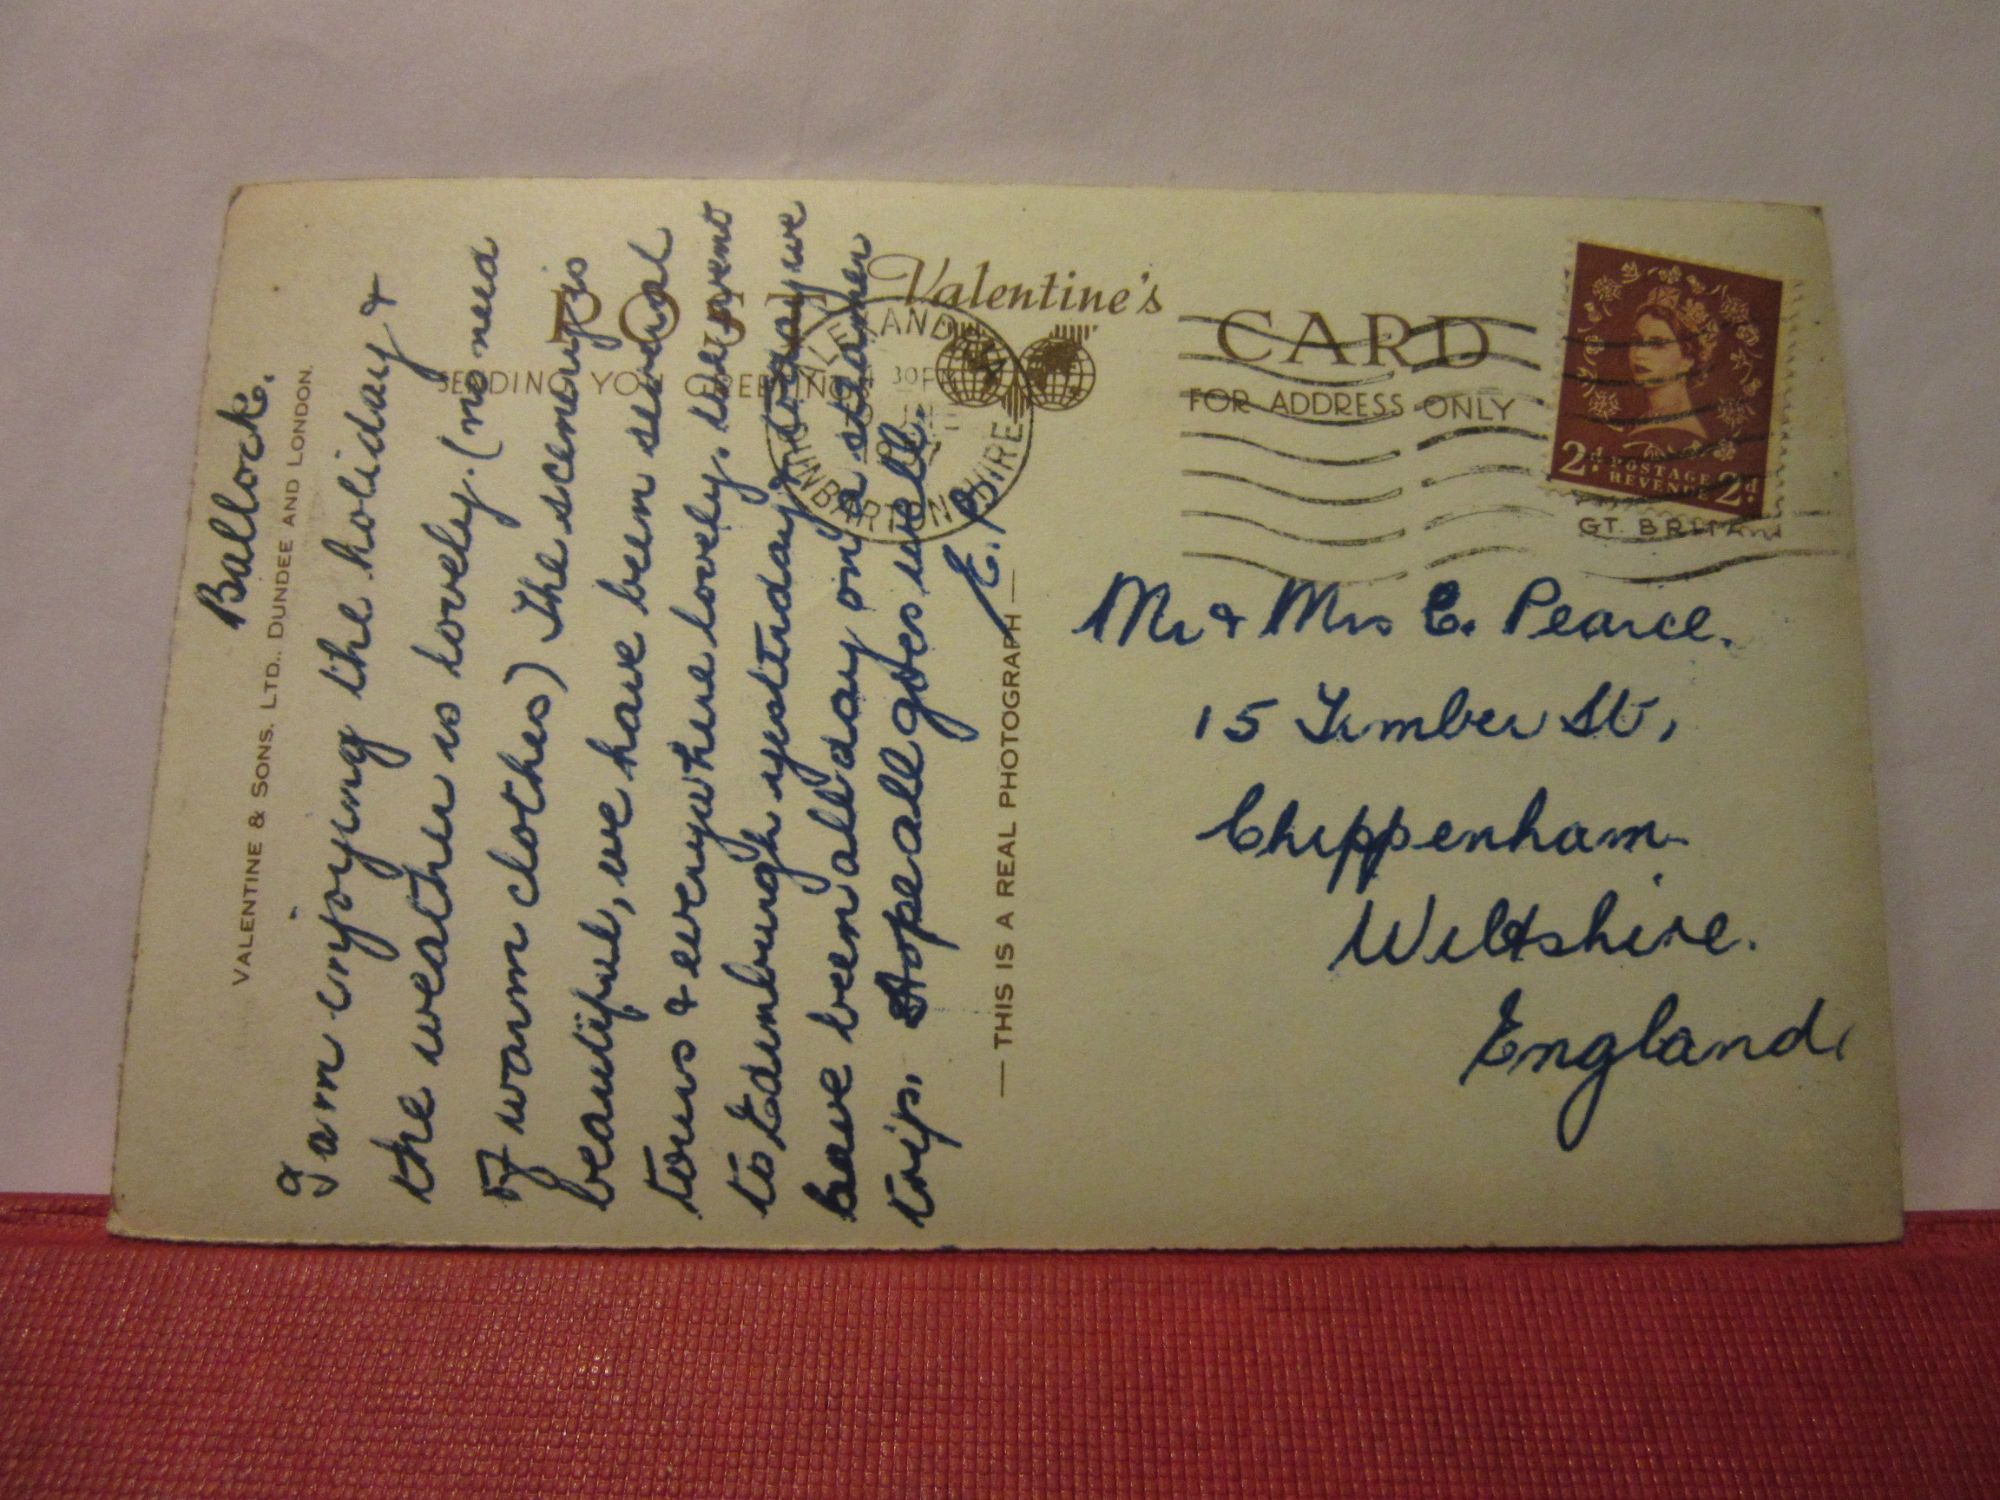 Ballock.
I am enjoying the holiday &
the weather is lovely. (no need
of warm clothes) The scenery is
beautiful, we have been several
tours & everywhere lovely. We went
to Edinburgh yesterday & today we
have been all day on a steamer
trip. Hope all goes well.
E.P.
VALENTINE & SONS. LTD., DUNDEE AND LONDON.
— THIS IS A REAL PHOTOGRAPH —
POST
Valentine's
CARD
SENDING YOU GREETING
FOR ADDRESS ONLY
DUMBARTONSHIRE
2d. POSTAGE 2d.
REVENUE
GT. BRITAIN
Mr & Mrs E. Pearce.
15 Timber St,
Chippenham
Wiltshire.
England.